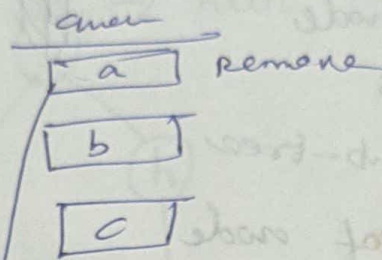 Queue
a Remove
b
c